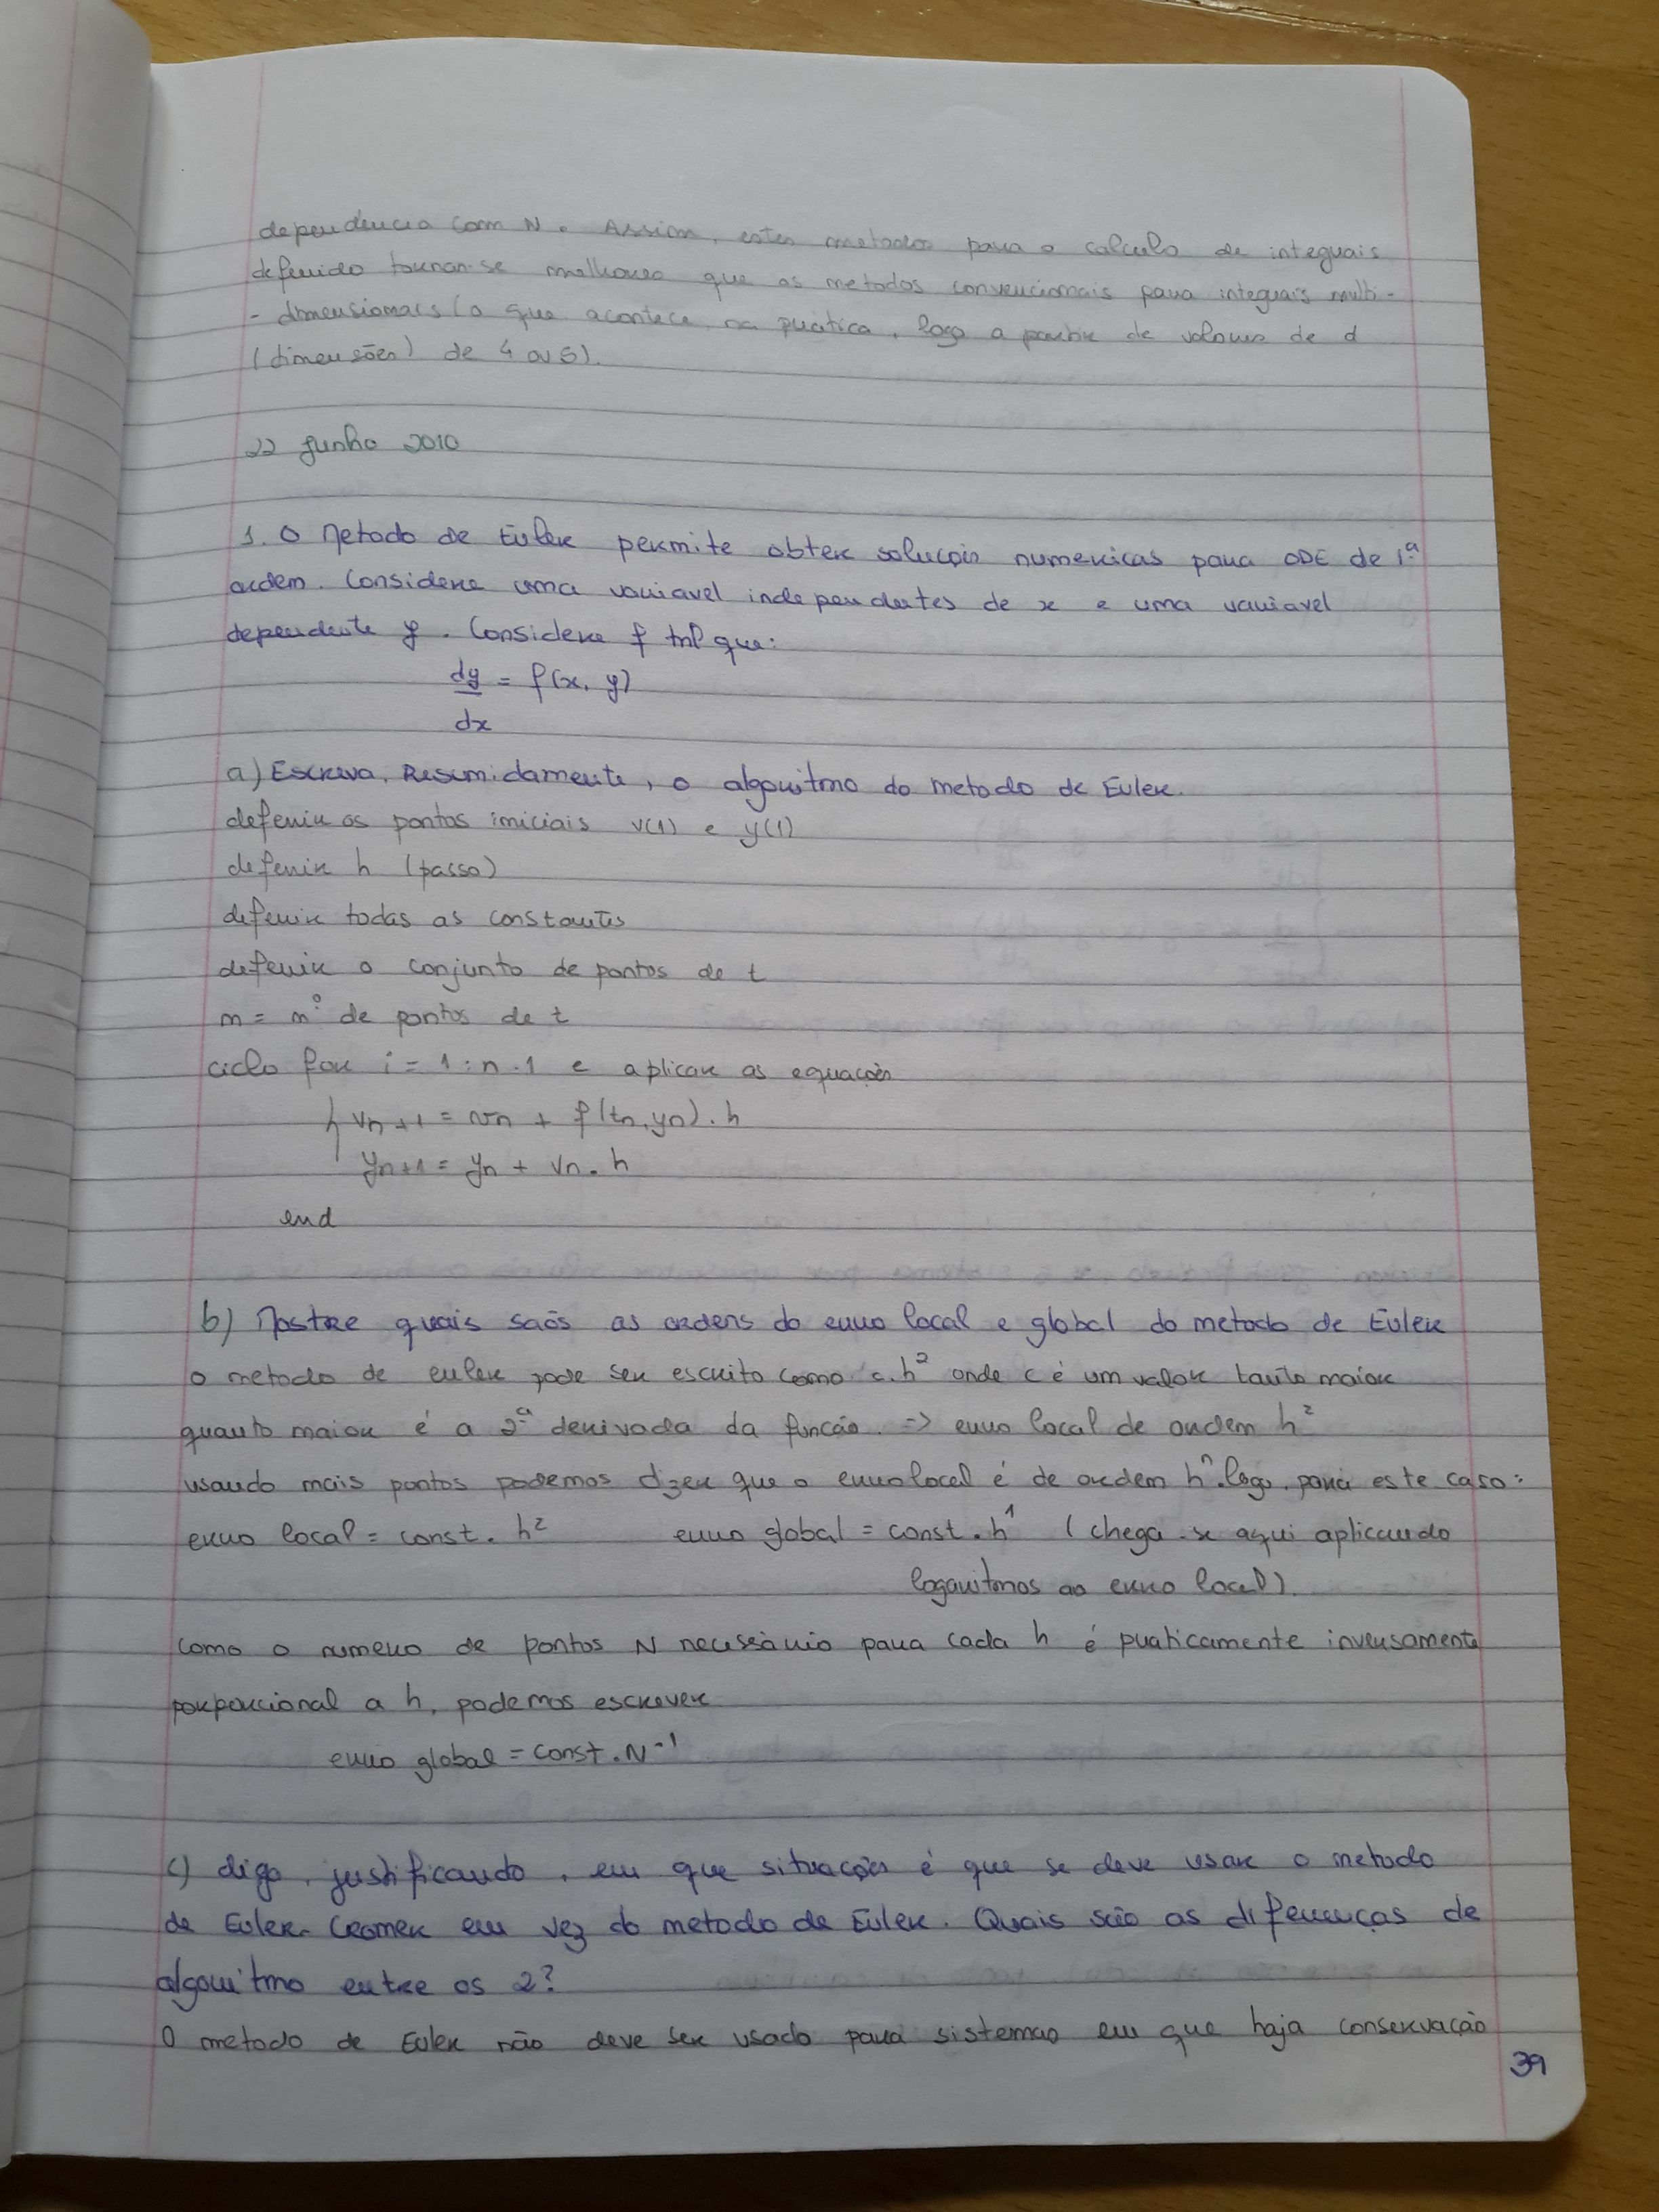 dependência com N. Assim, estes metodos para o calculo de integrais
defenido tornan-se melhores que os metodos convencionais para integrais multi-
- dimensionais (o que acontece, na prática, logo a partir de valores de d
(dimensões) de 4 ou 5).
22 junho 2010
1. O Metodo de Euler permite obter soluções numericas para ODE de 1ª
ordem. Considere uma variavel independentes de x e uma variavel
dependente y. Considere f tal que:
dy = f(x, y)
dx
a) Escreva, Resumidamente, o algoritmo do metodo de Euler.
defenir os pontos iniciais v(1) e y(1)
defenir h (passo)
defenir todas as constantes
defenir o conjunto de pontos de t
n = nº de pontos de t
ciclo for i = 1 : n-1 e aplicar as equações
{ vn+1 = vn + f(tn, yn). h
yn+1 = yn + vn. h
end
b) Mostre quais saõs as ordens do erro local e global do metodo de Euler
o metodo de euler pode ser escrito como c.h² onde c é um valor tanto maior
quanto maior é a 2ª derivada da função. => erro local de ordem h²
usando mais pontos podemos dizer que o erro local é de ordem hⁿ. logo, para este caso:
erro local = const. h² erro global = const. h¹ (chega-se aqui aplicando
logaritmos ao erro local).
como o numero de pontos N necessário para cada h é praticamente inversamente
porporcional a h, podemos escrever
erro global = const. N⁻¹
c) diga, justificando, em que situações é que se deve usar o metodo
de Euler-Cromer em vez do metodo de Euler. Quais são as diferenças de
algoritmo entre os 2?
O metodo de Euler não deve ser usado para sistemas em que haja conservação
39